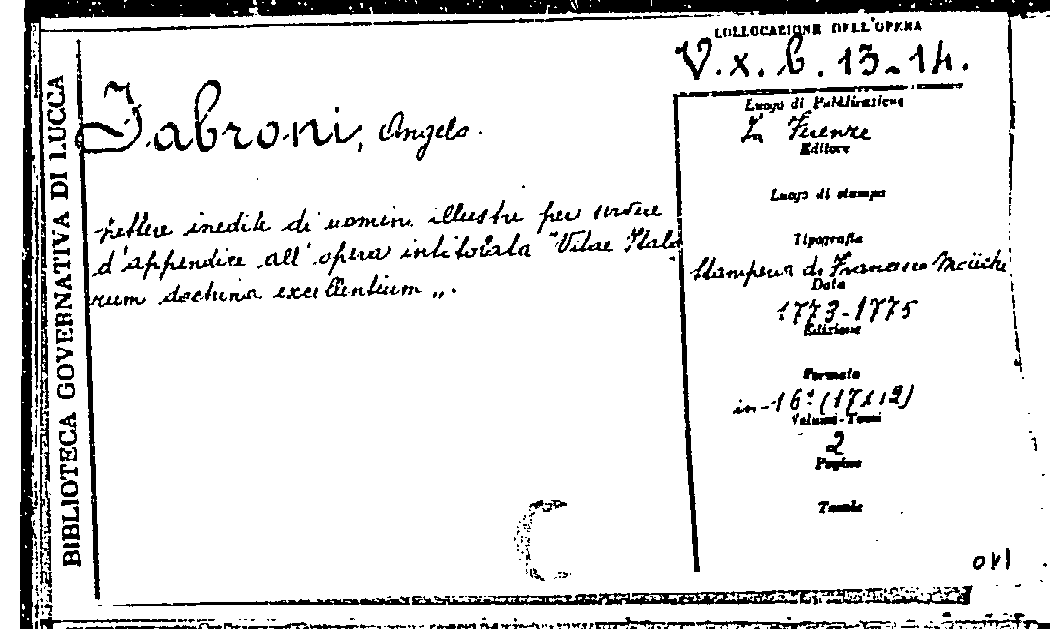 BIBLIOTECA GOVERNATIVA DI LUCCA
COLLOCAZIONE DELL'OPERA
V. x. b. 13-14.
Fabroni, Angelo.
Lettere inedite di uomini illustri per servire
d'appendice all'opera intitolata "Vitae Italo
rum doctrina excellentium „.
Luogo di Pubblicazione
In Firenze
Editore
Luogo di stampa
Tipografia
Stamperia di Francesco Moücke
Data
1773-1775
Edizione
Formato
in-16° (17x12)
Volumi-Tomi
2
Pagine
Tavole